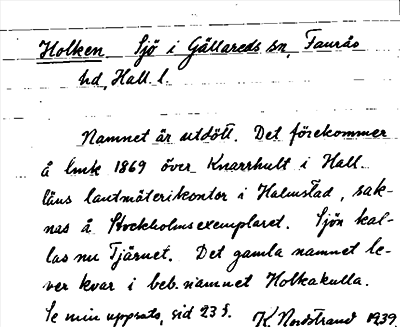 Holken Sjö i Gällareds sn, Faurås
hd, Hall. l.
Namnet är utdött. Det förekommer
å lmk 1869 över Knarrhult i Hall.
läns lantmäterikontor i Halmstad, sak-
nas å Stockholmsexemplaret. Sjön kal-
las nu Tjärnet. Det gamla namnet le-
ver kvar i beb.namnet Holkakulla.
Se min uppsats, sid 23 f.
K. Nordstrand 1939.